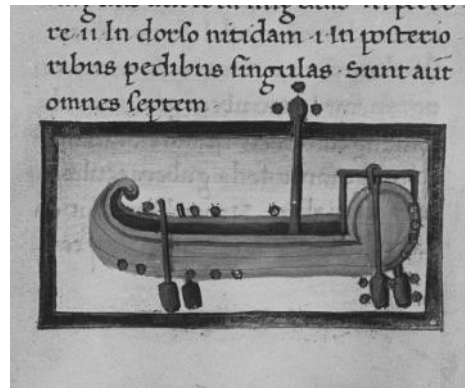 re · ii · In dorso nitidam · i · In posterio
ribus pedibus singulas · Sunt aut
omnes septem